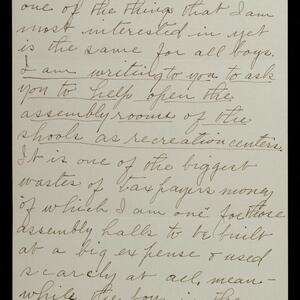 one of the things that I am
most interested in yet
is the same for all boys.
I am writing to you to ask
you to help open the
assembly rooms of the
shools as recreation centers.
It is one of the biggest
wastes of taxpayers money
"of which I am one" for those
assembly halls to be built
at a big expense & used
scarcly at all, mean-
while the boys in the